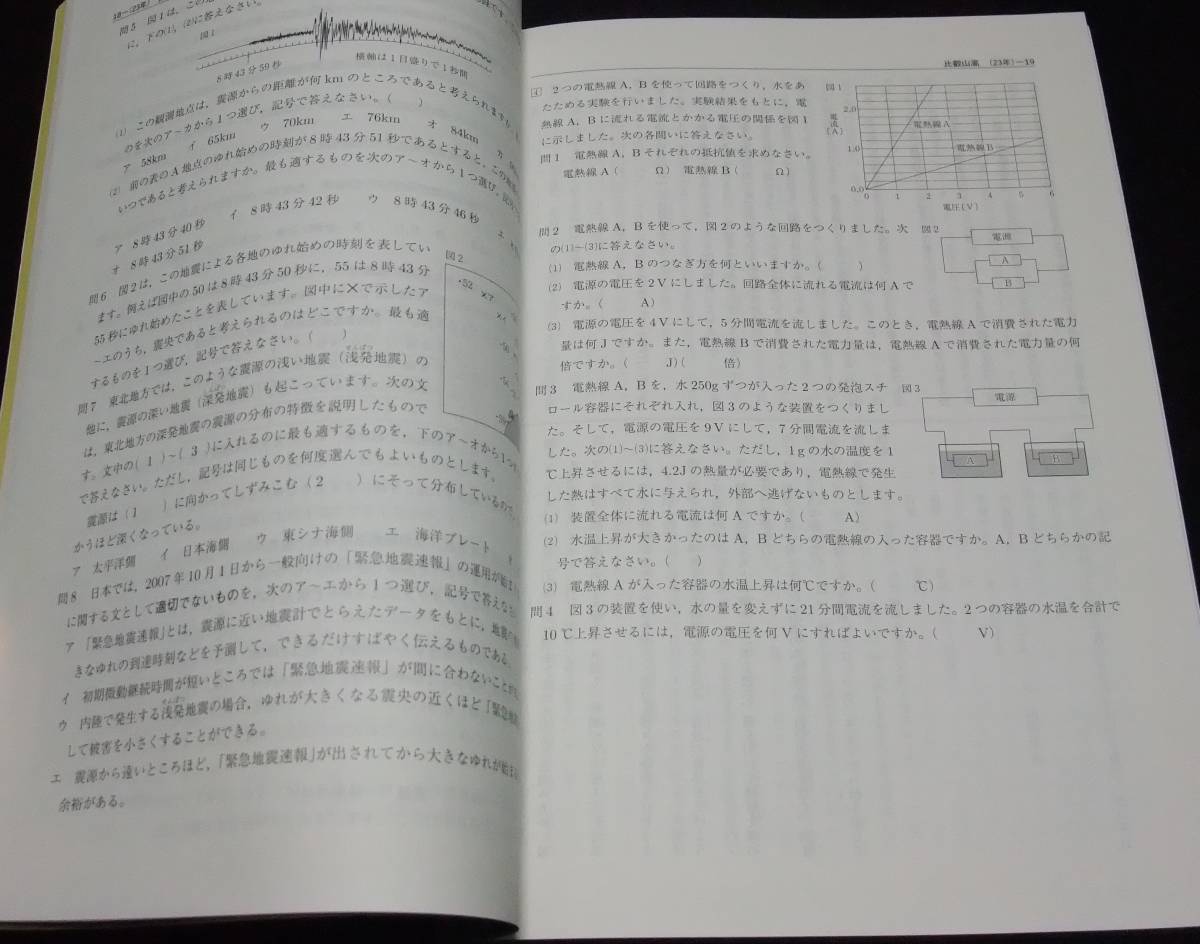 10-(23年)
問5 図1は,この
に,下の(1),(2)に答えなさい。
図1
8時43分59秒
横軸は1目盛りで1秒間
(1) この観測地点は,震源からの距離が何kmのところであると考えられますか
のを次のア〜カから1つ選び,記号で答えなさい。( )
ア 58km イ 65km ウ 70km エ 76km オ 84km カ
(2) 前の表のA地点のゆれ始めの時刻が8時43分51秒であるとすると,この地震
いつであると考えられますか。最も適するものを次のア〜オから1つ選び,記号
ア 8時43分40秒 イ 8時43分42秒 ウ 8時43分46秒 エ
オ 8時43分51秒
問6 図2は,この地震による各地のゆれ始めの時刻を表してい
ます。例えば図中の50は8時43分50秒に,55は8時43分
55秒にゆれ始めたことを表しています。図中に✕で示したア
〜エのうち,震央であると考えられるのはどこですか。最も適
するものを1つ選び,記号で答えなさい。( )
図2
・52 ×ア
×イ
問7 東北地方では,このような震源の浅い地震(浅発地震)の
せんぱつ
他に,震源の深い地震(深発地震)も起こっています。次の文
しんぱつ
は,東北地方の深発地震の震源の分布の特徴を説明したもので
す。文中の(1)〜(3)に入れるのに最も適するものを,下のア〜オから1つ
で答えなさい。ただし,記号は同じものを何度選んでもよいものとします。
震源は(1 )に向かってしずみこむ(2 )にそって分布しているので,
かうほど深くなっている。
ア 太平洋側 イ 日本海側 ウ 東シナ海側 エ 海洋プレート オ
問8 日本では,2007年10月1日から一般向けの「緊急地震速報」の運用が始ま
に関する文として適切でないものを,次のア〜エから1つ選び,記号で答えな
ア 「緊急地震速報」とは,震源に近い地震計でとらえたデータをもとに,地震の
きなゆれの到達時刻などを予測して,できるだけすばやく伝えるものである。
イ 初期微動継続時間が短いところでは「緊急地震速報」が間に合わないことが
ウ 内陸で発生する浅発地震の場合,ゆれが大きくなる震央の近くほど「緊急
せんぱつ
して被害を小さくすることができる。
エ 震源から遠いところほど,「緊急地震速報」が出されてから大きなゆれが始ま
余裕がある。
比叡山高 (23年)-19
4 2つの電熱線A,Bを使って回路をつくり,水をあ
たためる実験を行いました。実験結果をもとに,電
熱線A,Bに流れる電流とかかる電圧の関係を図1
に示しました。次の各問いに答えなさい。
問1 電熱線A,Bそれぞれの抵抗値を求めなさい。
電熱線A( Ω) 電熱線B( Ω)
図1
2.0
電流(A)
1.0
0.0
電熱線A
電熱線B
0 1 2 3 4 5 6
電圧(V)
問2 電熱線A,Bを使って,図2のような回路をつくりました。次
の(1)〜(3)に答えなさい。
(1) 電熱線A,Bのつなぎ方を何といいますか。( )
(2) 電源の電圧を2Vにしました。回路全体に流れる電流は何Aで
すか。( A)
図2
電源
A
B
(3) 電源の電圧を4Vにして,5分間電流を流しました。このとき,電熱線Aで消費された電力
量は何Jですか。また,電熱線Bで消費された電力量は,電熱線Aで消費された電力量の何
倍ですか。( J)( 倍)
問3 電熱線A,Bを,水250gずつが入った2つの発泡スチ
ロール容器にそれぞれ入れ,図3のような装置をつくりまし
た。そして,電源の電圧を9Vにして,7分間電流を流しま
した。次の(1)〜(3)に答えなさい。ただし,1gの水の温度を1
℃上昇させるには,4.2Jの熱量が必要であり,電熱線で発生
した熱はすべて水に与えられ,外部へ逃げないものとします。
図3
電源
A
B
(1) 装置全体に流れる電流は何Aですか。( A)
(2) 水温上昇が大きかったのはA,Bどちらの電熱線の入った容器ですか。A,Bどちらかの記
号で答えなさい。( )
(3) 電熱線Aが入った容器の水温上昇は何℃ですか。( ℃)
問4 図3の装置を使い,水の量を変えずに21分間電流を流しました。2つの容器の水温を合計で
10℃上昇させるには,電源の電圧を何Vにすればよいですか。( V)